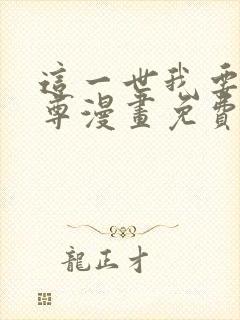 這一世我要
尊漫畫免費
龍正才